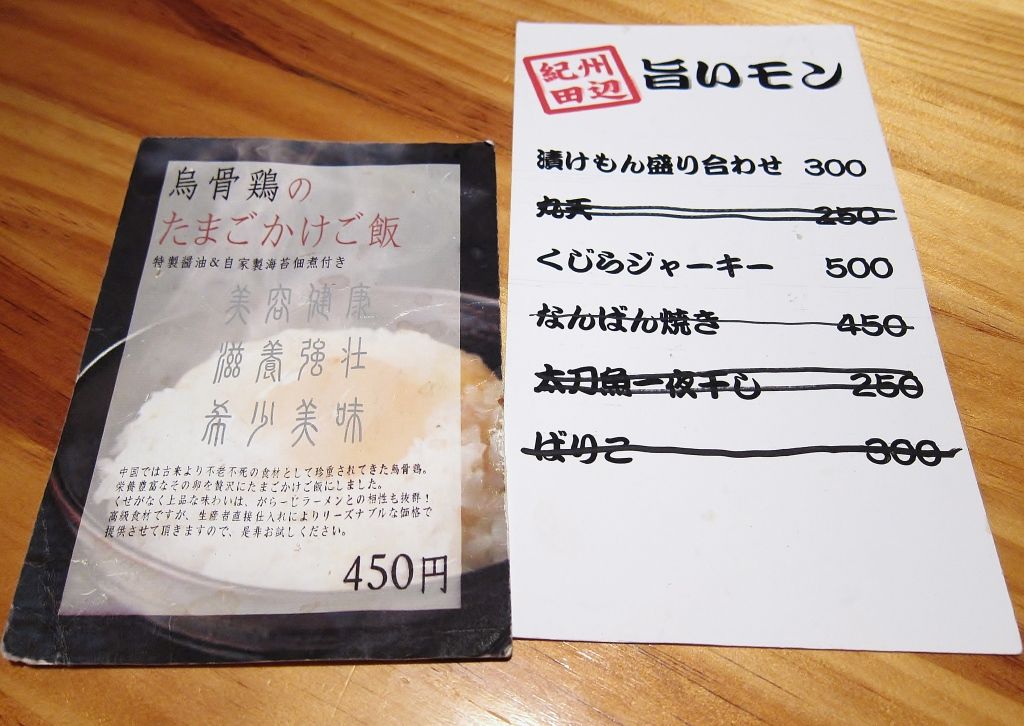 烏骨鶏の
たまごかけご飯
特製醤油&自家製海苔佃煮付き
美容健康
滋養強壮
希少美味
中国では古来より不老不死の食材として珍重されてきた烏骨鶏。
栄養豊富なその卵を贅沢にたまごかけご飯にしました。
くせがなく上品な味わいは、がらーじラーメンとの相性も抜群!
高級食材ですが、生産者直接仕入れによりリーズナブルな価格で
提供させて頂きますので、是非お試しください。
450円
紀州
田辺
旨いモン
漬けもん盛り合わせ 300
丸天 250
くじらジャーキー 500
なんばん焼き 450
太刀魚一夜干し 250
ばりこ 300